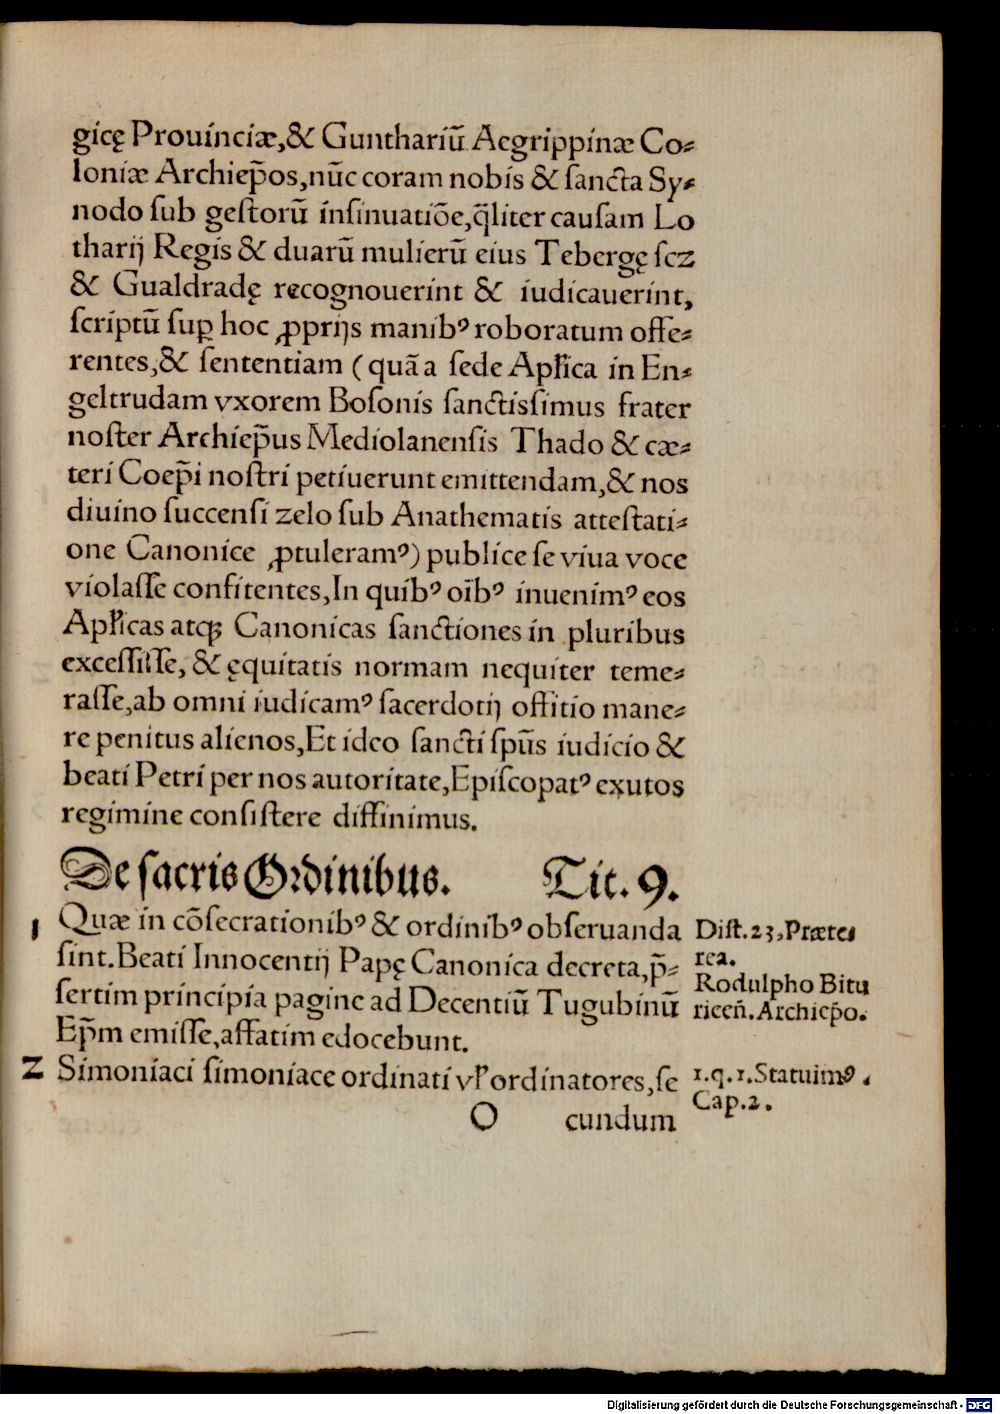 gicę Prouinciæ,& Gunthariū Aegrippinæ Co⸗
loniæ Archiep̃os,nūc coram nobis & ſancta Sy⸗
nodo ſub geſtorū inſinuatiōe,q̃liter cauſam Lo
tharij Regis & duarū mulierū eius Tebergę ſcz
& Gualdradę recognouerint & iudicauerint,
ſcriptū ſuꝑ hoc ꝓprijs manibꝰ roboratum offe⸗
rentes,& ſententiam (quā a ſede Apl̃ica in En⸗
geltrudam vxorem Boſonis ſanctiſſimus frater
noſter Archiep̃us Mediolanenſis Thado & cæ⸗
teri Coep̃i noſtri petiuerunt emittendam,& nos
diuino ſuccenſi zelo ſub Anathematis atteſtati⸗
one Canonice ꝓtuleramꝰ) publice ſe viua voce
violaſſe confitentes,In quibꝰ oībꝰ inuenimꝰ eos
Apl̃icas atq; Canonicas ſanctiones in pluribus
exceſſiſſe,& ęquitatis normam nequiter teme⸗
raſſe,ab omni iudicamꝰ ſacerdotij offitio mane⸗
re penitus alienos,Et ideo ſancti ſpūs iudicio &
beati Petri per nos autoritate,Epiſcopatꝰ exutos
regimine conſiſtere diffinimus.
De ſacris Ordinibus. Tit. 9.
1 Quæ in cōſecrationibꝰ & ordinibꝰ obſeruanda
ſint.Beati Innocentij Papę Canonica decreta,p̃⸗
ſertim principia pagine ad Decentiū Tugubinū
Ep̃m emiſſe,affatim edocebunt.
Diſt.23,Præte⸗
rea.
Rodulpho Bitu
riceñ.Archiep̃o.
2 Simoniaci ſimoniace ordinati vl̃ ordinatores,ſe
1.q.1.Statuimꝰ.
Cap.2.
O cundum
Digitalisierung gefördert durch die Deutsche Forschungsgemeinschaft - DFG